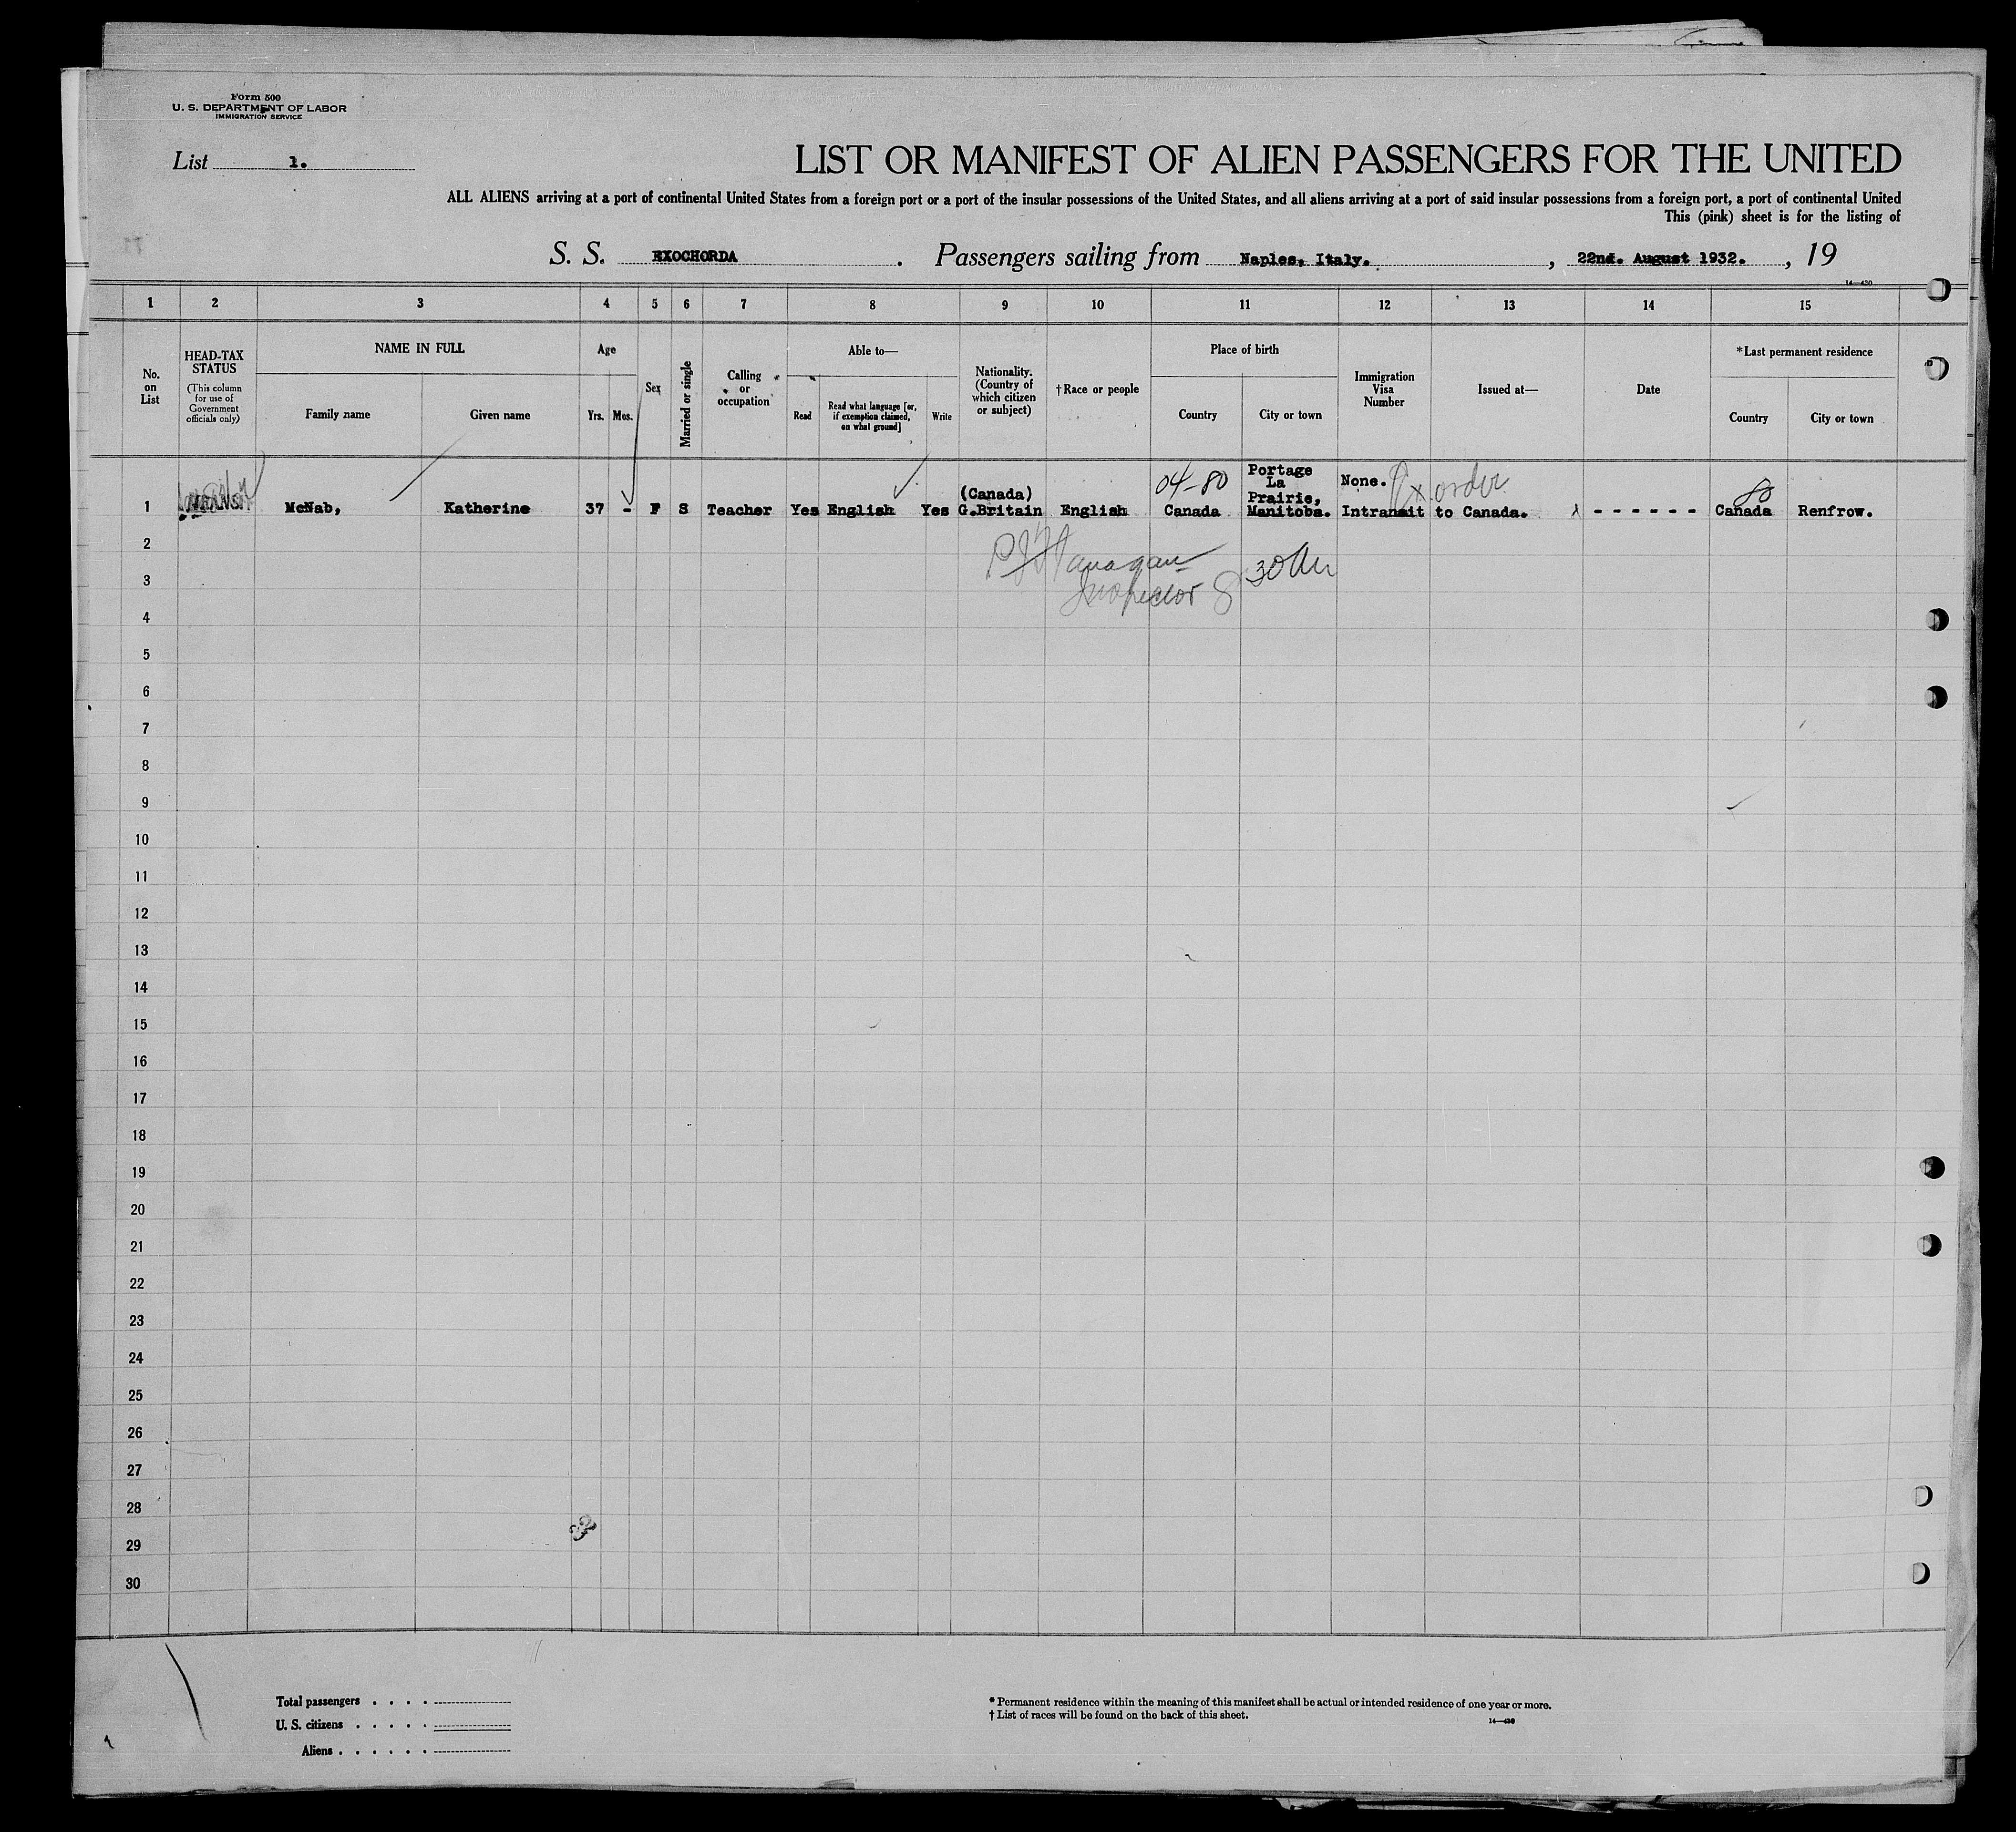 Form 500
U. S. DEPARTMENT OF LABOR
IMMIGRATION SERVICE
List 1.
LIST OR MANIFEST OF ALIEN PASSENGERS FOR THE UNITED
ALL ALIENS arriving at a port of continental United States from a foreign port or a port of the insular possessions of the United States, and all aliens arriving at a port of said insular possessions from a foreign port, a port of continental United
This (pink) sheet is for the listing of
S. S. EXOCHORDA . Passengers sailing from Naples, Italy. , 22nd. August 1932. , 19
14—430
1 2 3 4 5 6 7 8 9 10 11 12 13 14 15
No. on List
HEAD-TAX STATUS
(This column for use of Government officials only)
NAME IN FULL
Family name Given name
Age
Yrs. Mos.
Sex
Married or single
Calling or occupation
Able to—
Read
Read what language [or, if exemption claimed, on what ground]
Write
Nationality. (Country of which citizen or subject)
†Race or people
Place of birth
Country City or town
Immigration Visa Number
Issued at—
Date
*Last permanent residence
Country City or town
1 McNab, Katherine 37 - F S Teacher Yes English Yes (Canada) G.Britain English 04-80 Canada Portage La Prairie, Manitoba. None. Intransit to Canada. - - - - - - 80 Canada Renfrow.
order
2
Inspector
3
4
5
6
7
8
9
10
11
12
13
14
15
16
17
18
19
20
21
22
23
24
25
26
27
28
29
30
Total passengers . . . .
U. S. citizens . . . . .
Aliens . . . . . .
* Permanent residence within the meaning of this manifest shall be actual or intended residence of one year or more.
† List of races will be found on the back of this sheet.
14—430